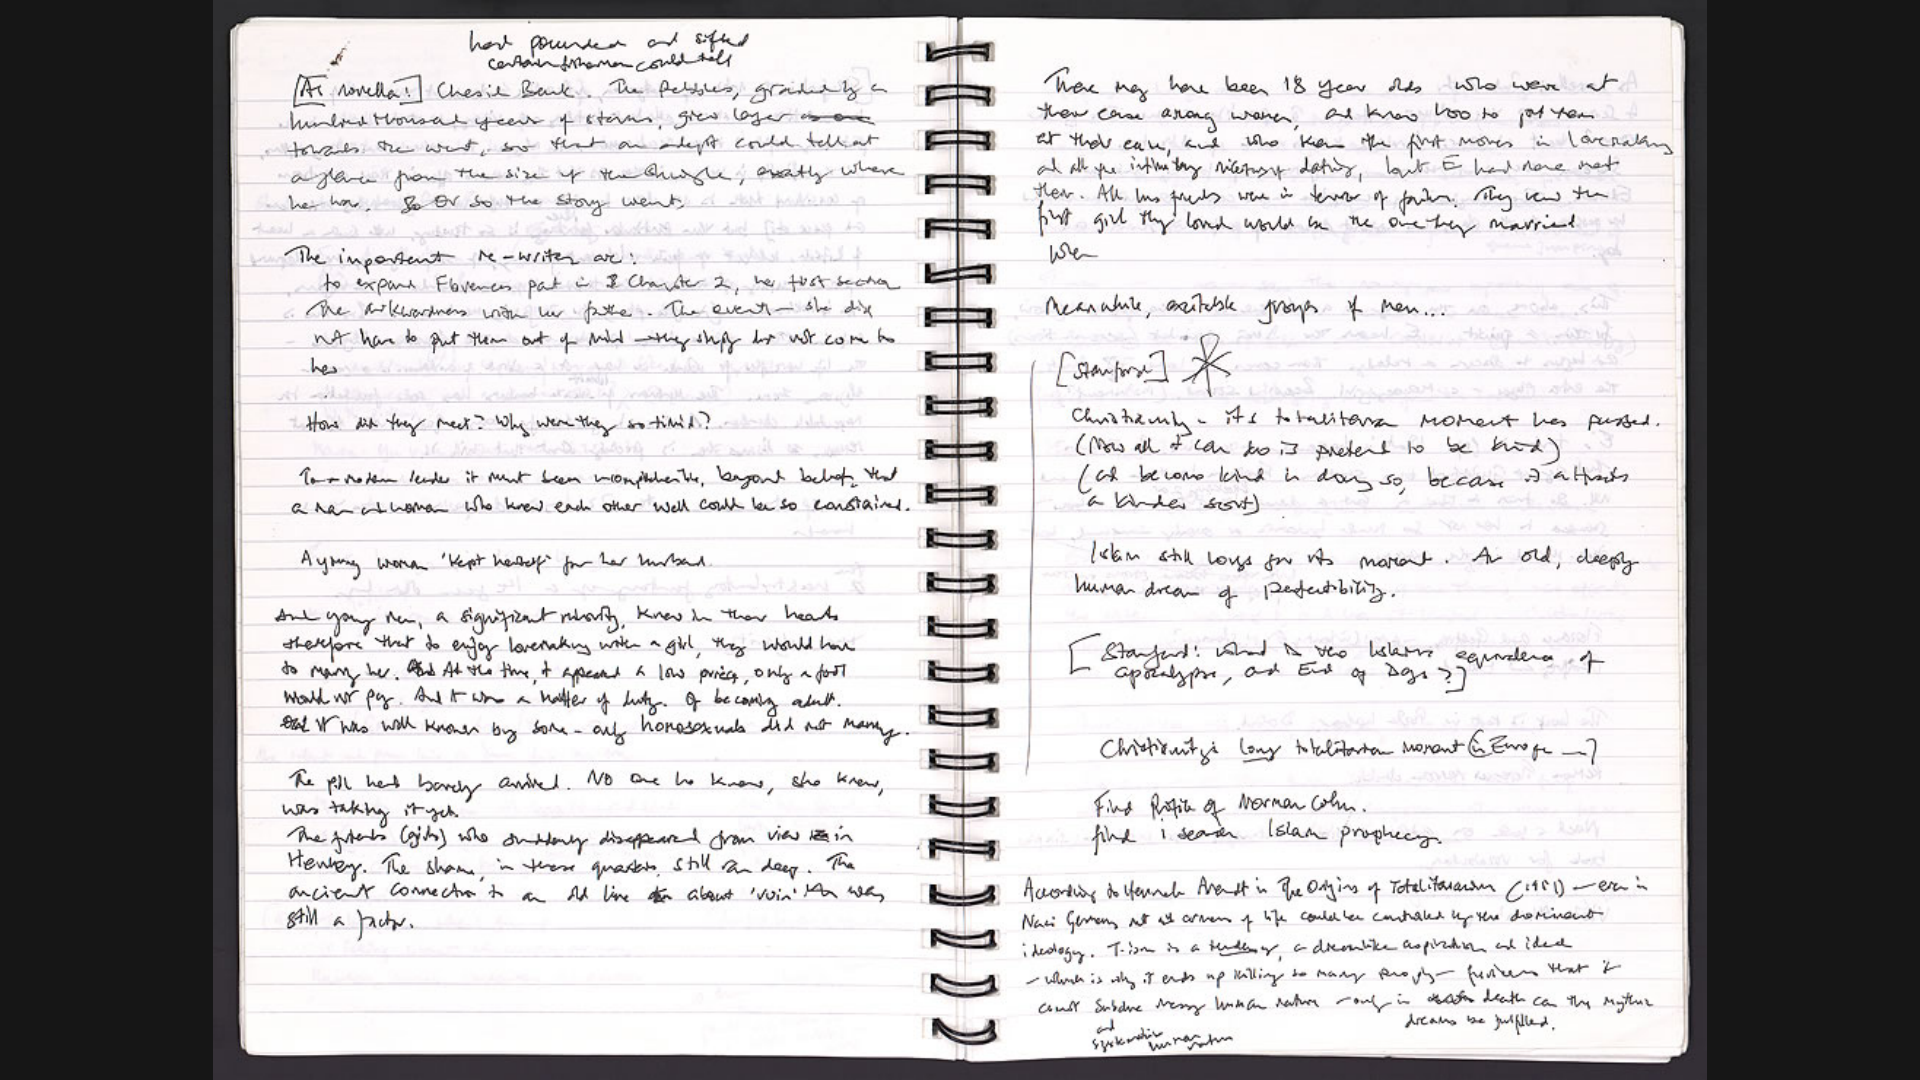 had pounded and sifted
certain fisherman could tell
[As novella!] Chesil Bank. The Pebbles, graded by a
hundred thousand years of storms, grew larger
towards the west, so that an adept could tell at
a glance from the size of the shingle, exactly where
he was. So Or so the story went.
The important re-writes are:
to expand Florence's part in Chapter 2, her first section
The awkwardness with her father. The events — she did
not have to put them out of mind — they simply did not come to
her
How did they meet? Why were they so timid?
To a modern reader it must seem incomprehensible, beyond belief, that
a man and woman who knew each other well could be so constrained.
A young woman 'kept herself' for her husband.
And young men, a significant minority, knew in their hearts
therefore that to enjoy lovemaking with a girl, they would have
to marry her. And At the time, it appeared a low price, only a fool
would not pay. And it was a matter of duty. Of becoming adult.
And it was well known by some - only homosexuals did not marry.
The pill had barely arrived. No one he knew, she knew,
was taking it yet.
The friends (girls) who suddenly disappeared from view in
Henley. The shame, in these quarters, still ran deep. The
ancient connection to an old line about 'ruin' was
still a factor.
There may have been 18 year olds who were at
their ease among women, and knew how to put them
at their ease, and who knew the first moves in lovemaking
and all the intimidating niceties of dating, but E had none met
them. All his friends were in terror of failure. They knew the
first girl they loved would be the one they married
When
Meanwhile, excitable groups of men...
[Stanford]
Christianity - its totalitarian moment has passed.
(Now all it can do is pretend to be kind)
(and become kind in doing so, because it attracts
a kinder sort)
Islam still longs for its moment. An old, deeply
human dream of perfectibility.
[Stanford: what is the Islamic equivalence of
apocalypse, and End of Days?]
Christianity's long totalitarian moment (in Europe —)
Find Profile of Norman Cohn.
find i search Islam prophecy.
According to Hannah Arendt in The Origins of Totalitarianism (1951) — even in
Nazi Germany not all corners of life could be controlled by the dominant
ideology. T-ism is a tendency, a dreamlike aspiration and ideal
- which is why it ends up killing so many people — furious that it
cannot subdue messy human nature - only in death can the mythic
dreams be fulfilled.
and
systematise
human nature